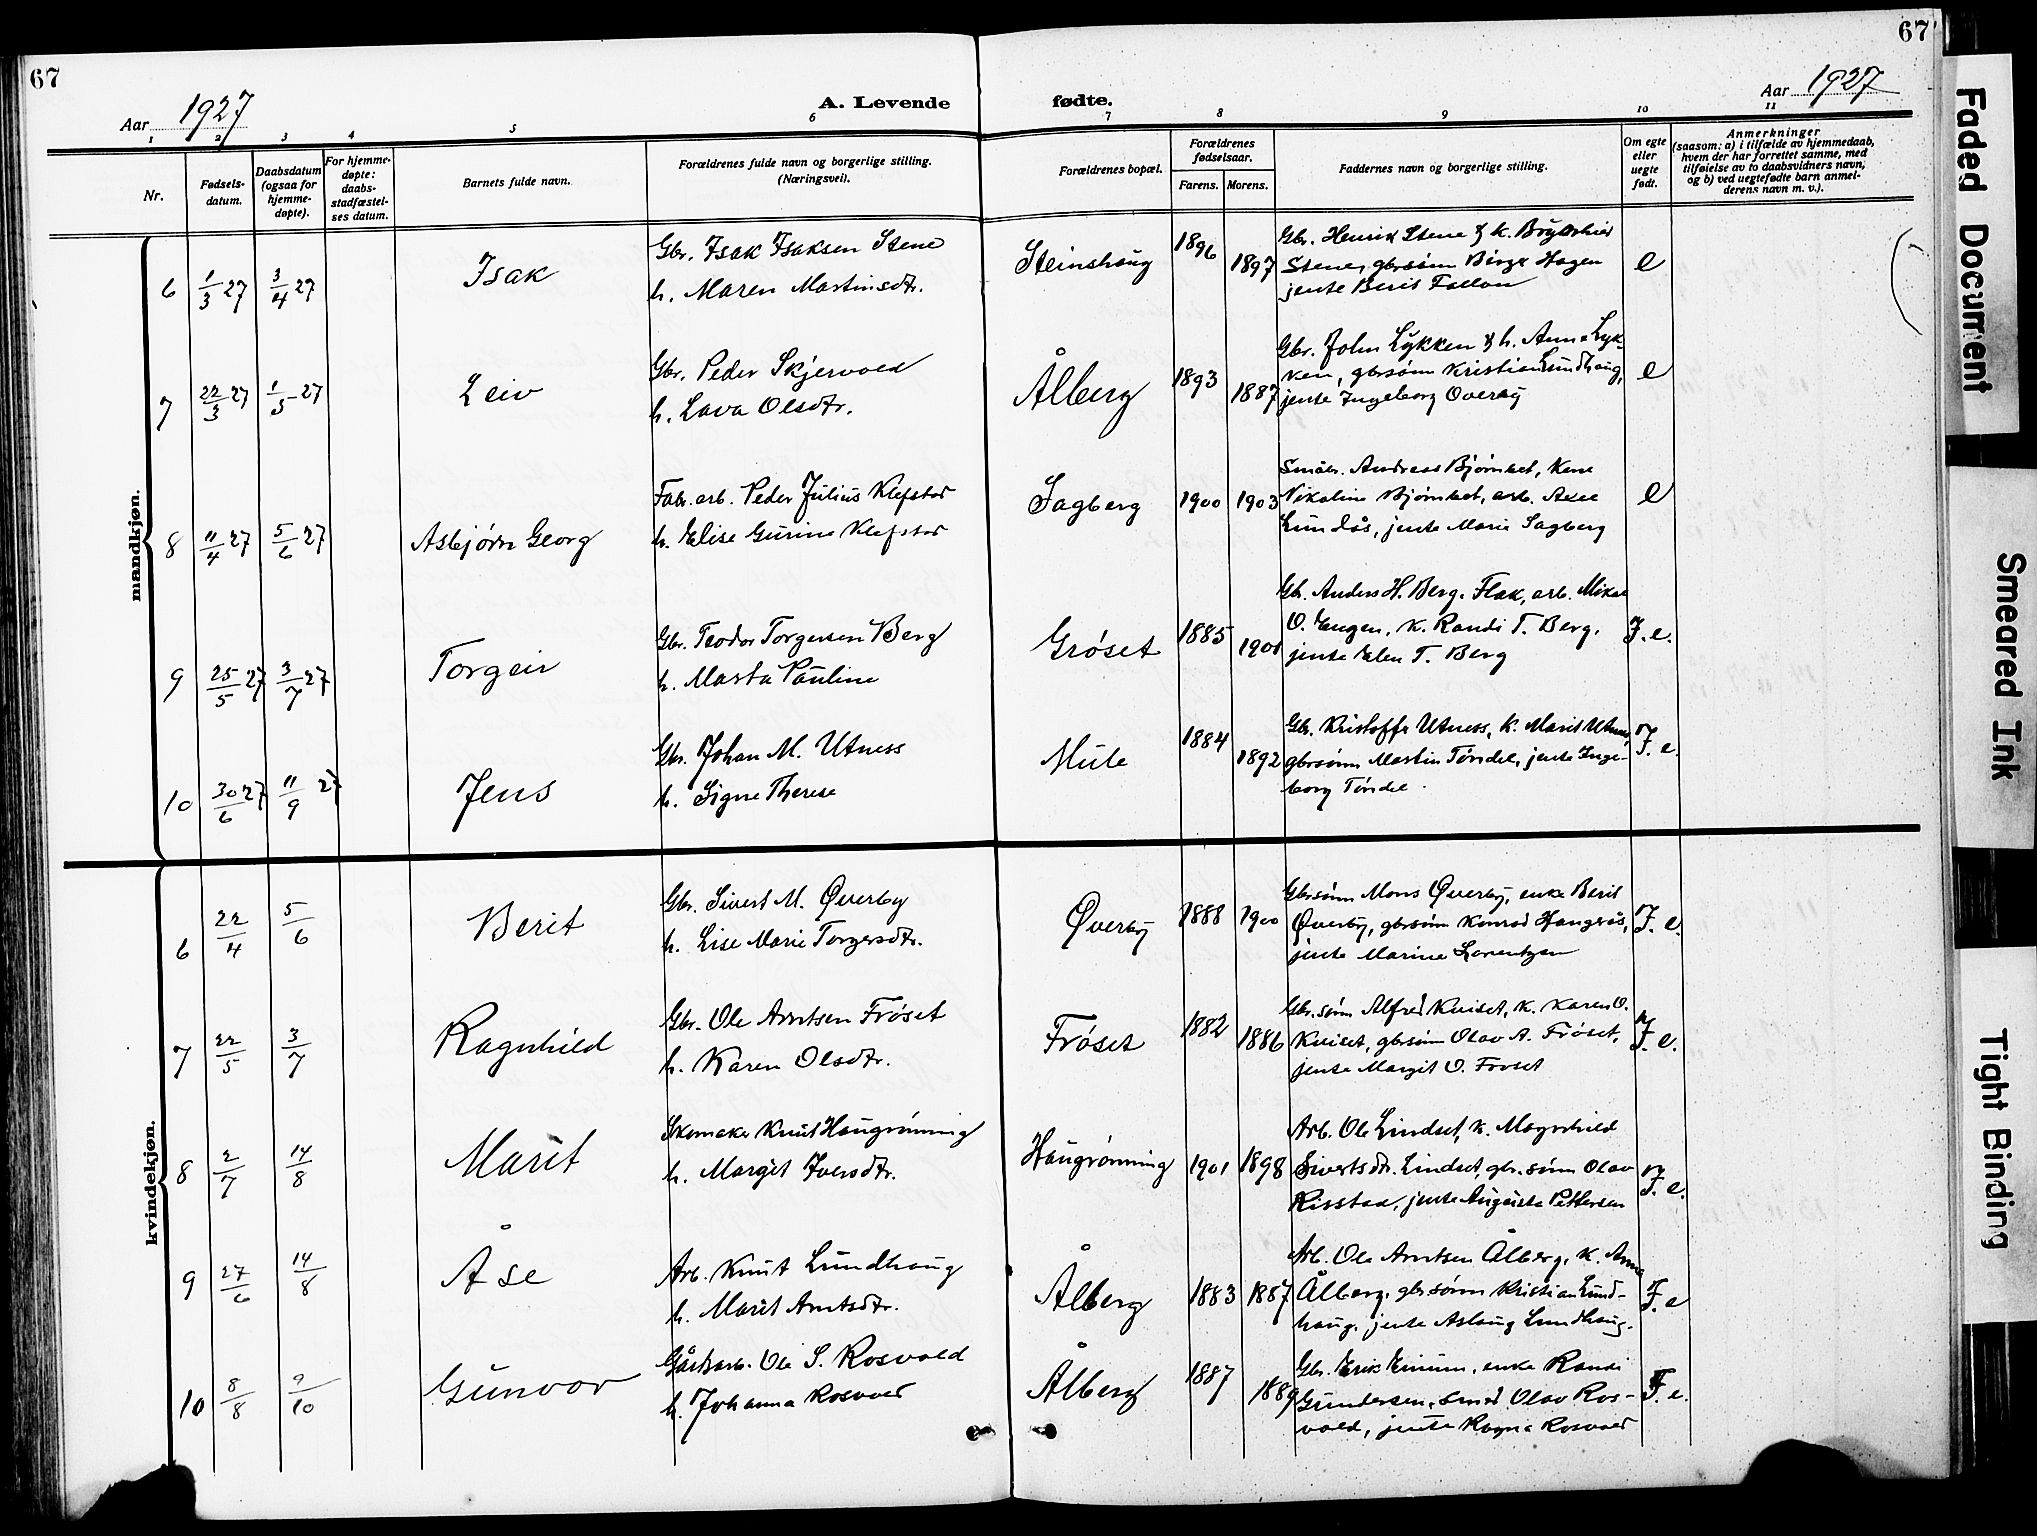 67
67
Aar 1927
A. Levende fødte.
Aar 1927
1 2 3 4 5 6 7 8 9 10 11
Nr.
Fødsels-
datum.
Daabsdatum
(ogsaa for
hjemme-
døpte).
For hjemme-
døpte:
daabs-
stadfæstel-
ses datum.
Barnets fulde navn.
Forældrenes fulde navn og borgerlige stilling.
(Næringsvei).
Forældrenes bopæl.
Forældrenes
fødselsaar.
Farens. Morens.
Faddernes navn og borgerlige stilling.
Om egte
eller
uegte
født.
Anmerkninger
(saasom: a) i tilfælde av hjemmedaab,
hvem der har forrettet samme, med
tilføielse av to daabsvidners navn,
og b) ved uegtefødte barn anmel-
derens navn m. v.).
mandkjøn.
6 1/3 27 3/4 27 Isak
Gbr. Isak Isaksen Stene
h. Maren Martinsdtr.
Steinshaug 1896 1897
Gbr. Henrik Stene & k.
Stene, gbrsønn Birger Hagen
jente Berit
e
7 22/3 27 1/5 27 Leiv
Gbr. Peder Skjervold
h. Lava Olsdtr.
Ålberg 1893 1887
Gbr. John Lykken & h. Anna Lyk-
ken, gbrsønn Kristian Lundhaug,
jente Ingeborg Overby
e
8 11/4 27 5/6 27 Asbjørn Georg
Fabr. arb. Peder Julius Klefstad
h. Elise Gurine Klefstad
Sagberg 1900 1903
Småbr. Andreas Bjørnbet, kone
Nikoline Bjørnbet, arb. Axel
Lundås, jente Marie Sagberg
e
9 25/5 27 3/7 27 Torgeir
Gbr. Teodor Torgersen Berg
h. Marta Pauline
Grøset 1885 1901
Gbr. Anders H. Berg, Flak, arb. Mikal
O. Engen, k. Randi T. Berg,
jente Elen T. Berg
F. e.
10 30/6 27 11/9 27 Jens
Gbr. Johan M. Utness
h. Signe Therese
Mule 1884 1892
Gbr. Kristoffer Utness, k. Marit Utness,
gbrsønn Martin Tøndel, jente Inge-
borg Tøndel.
F. e.
kvindekjøn.
6 22/4 5/6 Berit
Gbr. Sivert M. Øverby
h. Lise Marie Torgersdtr.
Øverby 1888 1900
Gbrsønn Mons Øverby, enke Berit
Øverby, gbrsønn Konrad Haugrås,
jente Marine Lorentzen
F. e.
7 22/5 3/7 Ragnhild
Gbr. Ole Arntsen Frøset
h. Karen Olsdtr.
Frøset 1882 1886
Gbr. sønn Alfred Kviset, k. Karen O.
Kviset, gbrsønn Olav A. Frøset,
jente Margit O. Frøset
F. e.
8 2/7 14/8 Marit
Skomaker Knut Haugrønning
h. Margit Iversdtr.
Haugrønning 1901 1898
Arb. Ole Lindset, k. Magnhild
Sivertsdtr. Lindset, gbr. sønn Olav
Risstad, jente Augusta Pettersen
F. e.
9 27/6 14/8 Åse
Arb. Knut Lundhaug
h. Marit Arntsdtr.
Ålberg 1883 1887
Arb. Ole Arntsen Ålberg, k. Anna
Ålberg, gbrsønn Kristian Lund-
haug, jente Aslaug Lundhaug.
F. e
10 8/8 9/10 Gunvor
Gårdsarb. Ole S. Rosvold
h. Johanna Rosvold
Ålberg 1887 1889
Gbr. Erik Einum, enke Randi
Gundersen, smed Olav Ros-
vold, jente Ragna Rosvold
F. e.
Faded Document
Smeared Ink
Tight Binding